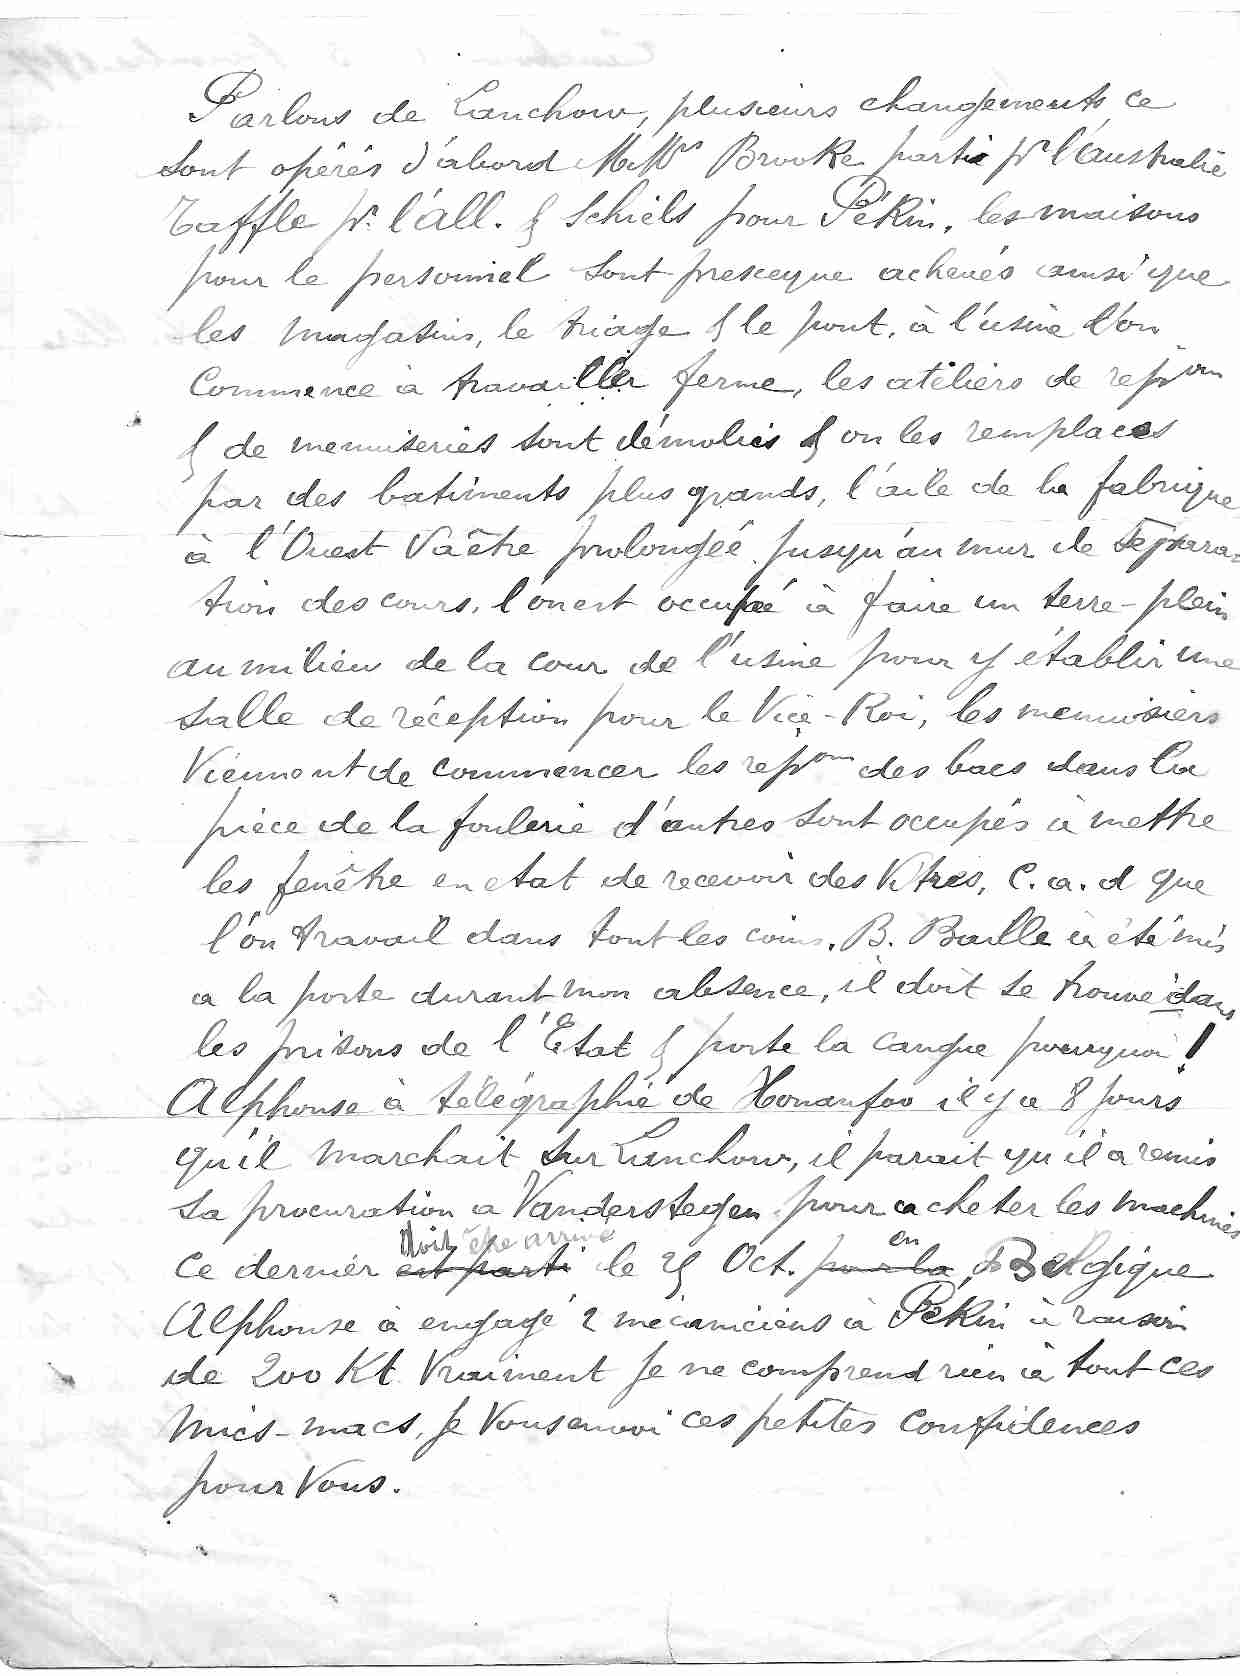 Parlons de Lanchow, plusieurs changements ce
sont opérés d'abord M. Mrs Brooke partis pr l'Australie
Taffle pr. l'all. & Schiels pour Pékin, les maisons
pour le personnel sont presceque achevés ainsi que
les magasins, le triage & le pont, à l'usine l'on
commence à travailler ferme, les atéliers de repon
& de menuiseries sont démolies & on les remplaces
par des batiments plus grands, l'aile de la fabrique
à l'Ouest va être prolongéé jusqu'au mur de sépara-
tion des cours, l'on est occupé à faire un terre-plein
au milieu de la cour de l'usine pour y établir une
salle de réception pour le Vice-Roi, les menuisiers
viennent de commencer les repon des bacs dans la
pièce de la foulerie d'autres sont occupés à mettre
les fenêtre en etat de recevoir des vitres, c.a.d que
l'on travail dans tout les coins. B. Baille à été mis
a la porte durant mon absence, il doit se trouvé dans
les prisons de l'État & porte la cangue pourquoi!
Alphonse à télégraphié de Honanfoo il y a 8 jours
qu'il marchait sur Lanchow, il parait qu'il a remis
sa procuration a Vanderstegen pour acheter les machines
doit être arrivé en
Ce dernier est parti le 25 Oct. pour la Belgique
Alphonse à engagé 2 mécaniciens à Pékin à raison
de 200 Kt. Vraiment je ne comprend rien à tout ces
mics-macs, je vous envoi ces petites confidences
pour vous.